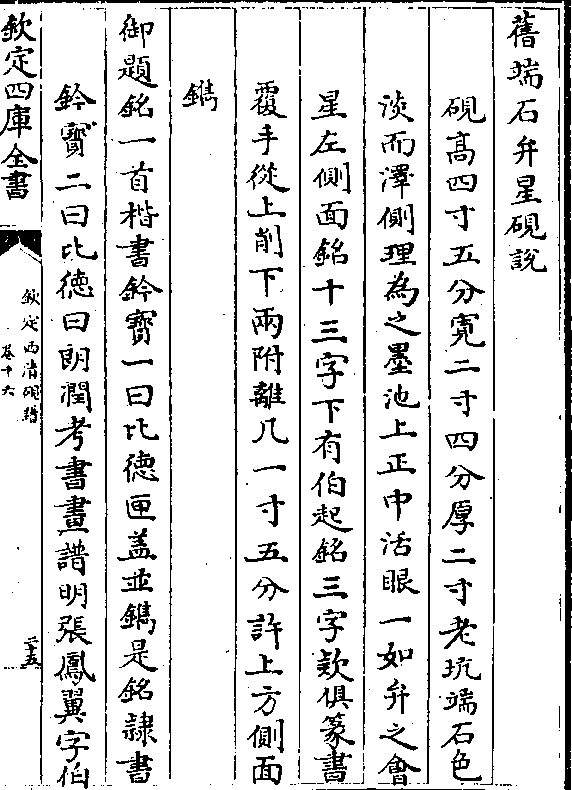 舊端石弁星硯說
硯高四寸五分寛二寸四分厚二寸老坑端石色
淡而澤側理為之墨池上正中活眼一如弁之會
星左側面銘十三字下有伯起銘三字欵俱篆書
覆手從上削下兩附離几一寸五分許上方側面
鐫
御題銘一首楷書鈐寶一曰比德匣蓋並鐫是銘隷書
鈐寶二曰比德曰朗潤考書畫譜明張鳳翼字伯
欽定四庫全書
欽定西清硯譜
卷十六
二十五